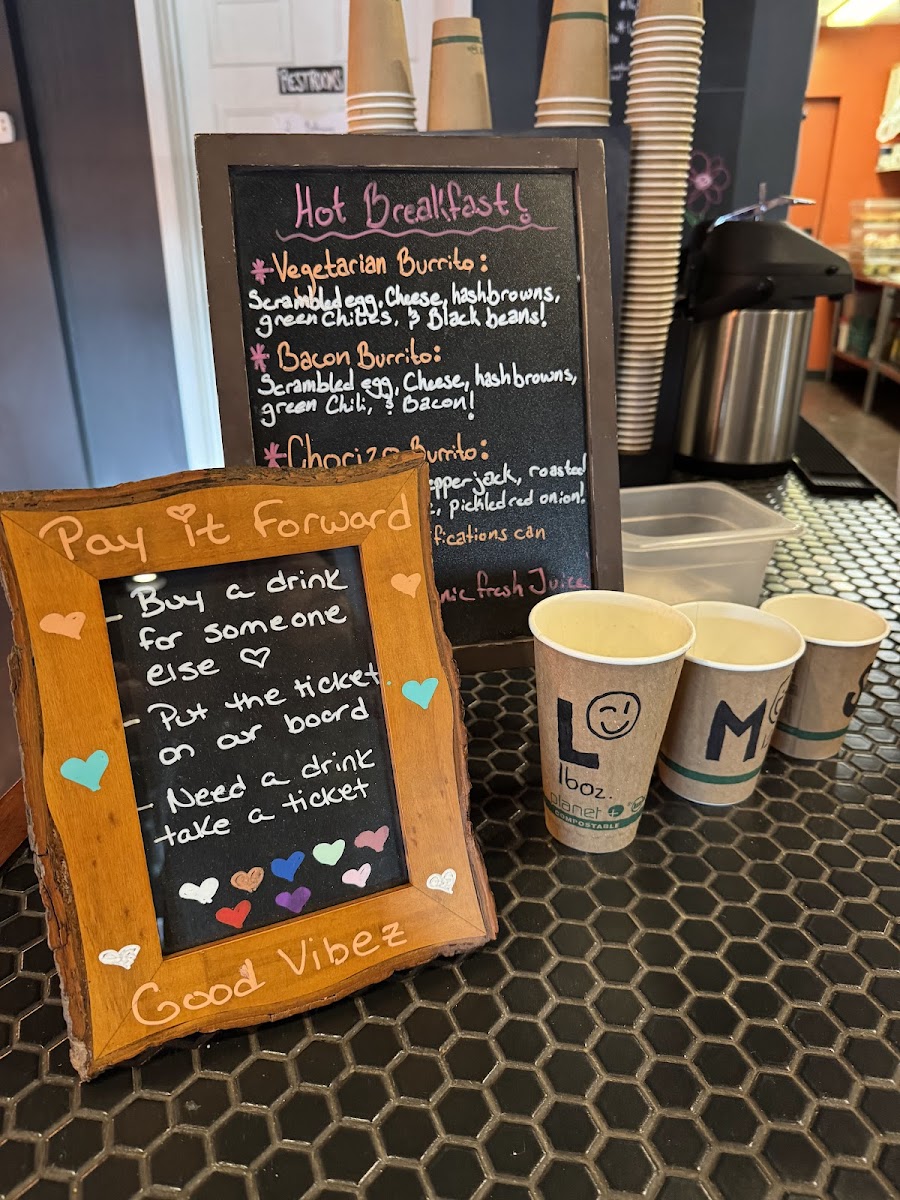 RESTROOMS
Hot Breakfast!
*Vegetarian Burrito:
Scrambled egg, Cheese, hashbrowns,
green Chiles, & Black beans!
* Bacon Burrito:
Scrambled egg, Cheese, hashbrowns,
green Chili, & Bacon!
*Chorizo Burrito:
epperjack, roasted
pickled red onion!
ifications can
nic fresh Juice
Pay it Forward
- Buy a drink
for someone
else
- Put the ticket
on our board
- Need a drink
take a ticket
Good Vibez
L
16oz.
planet+
COMPOSTABLE
M
S